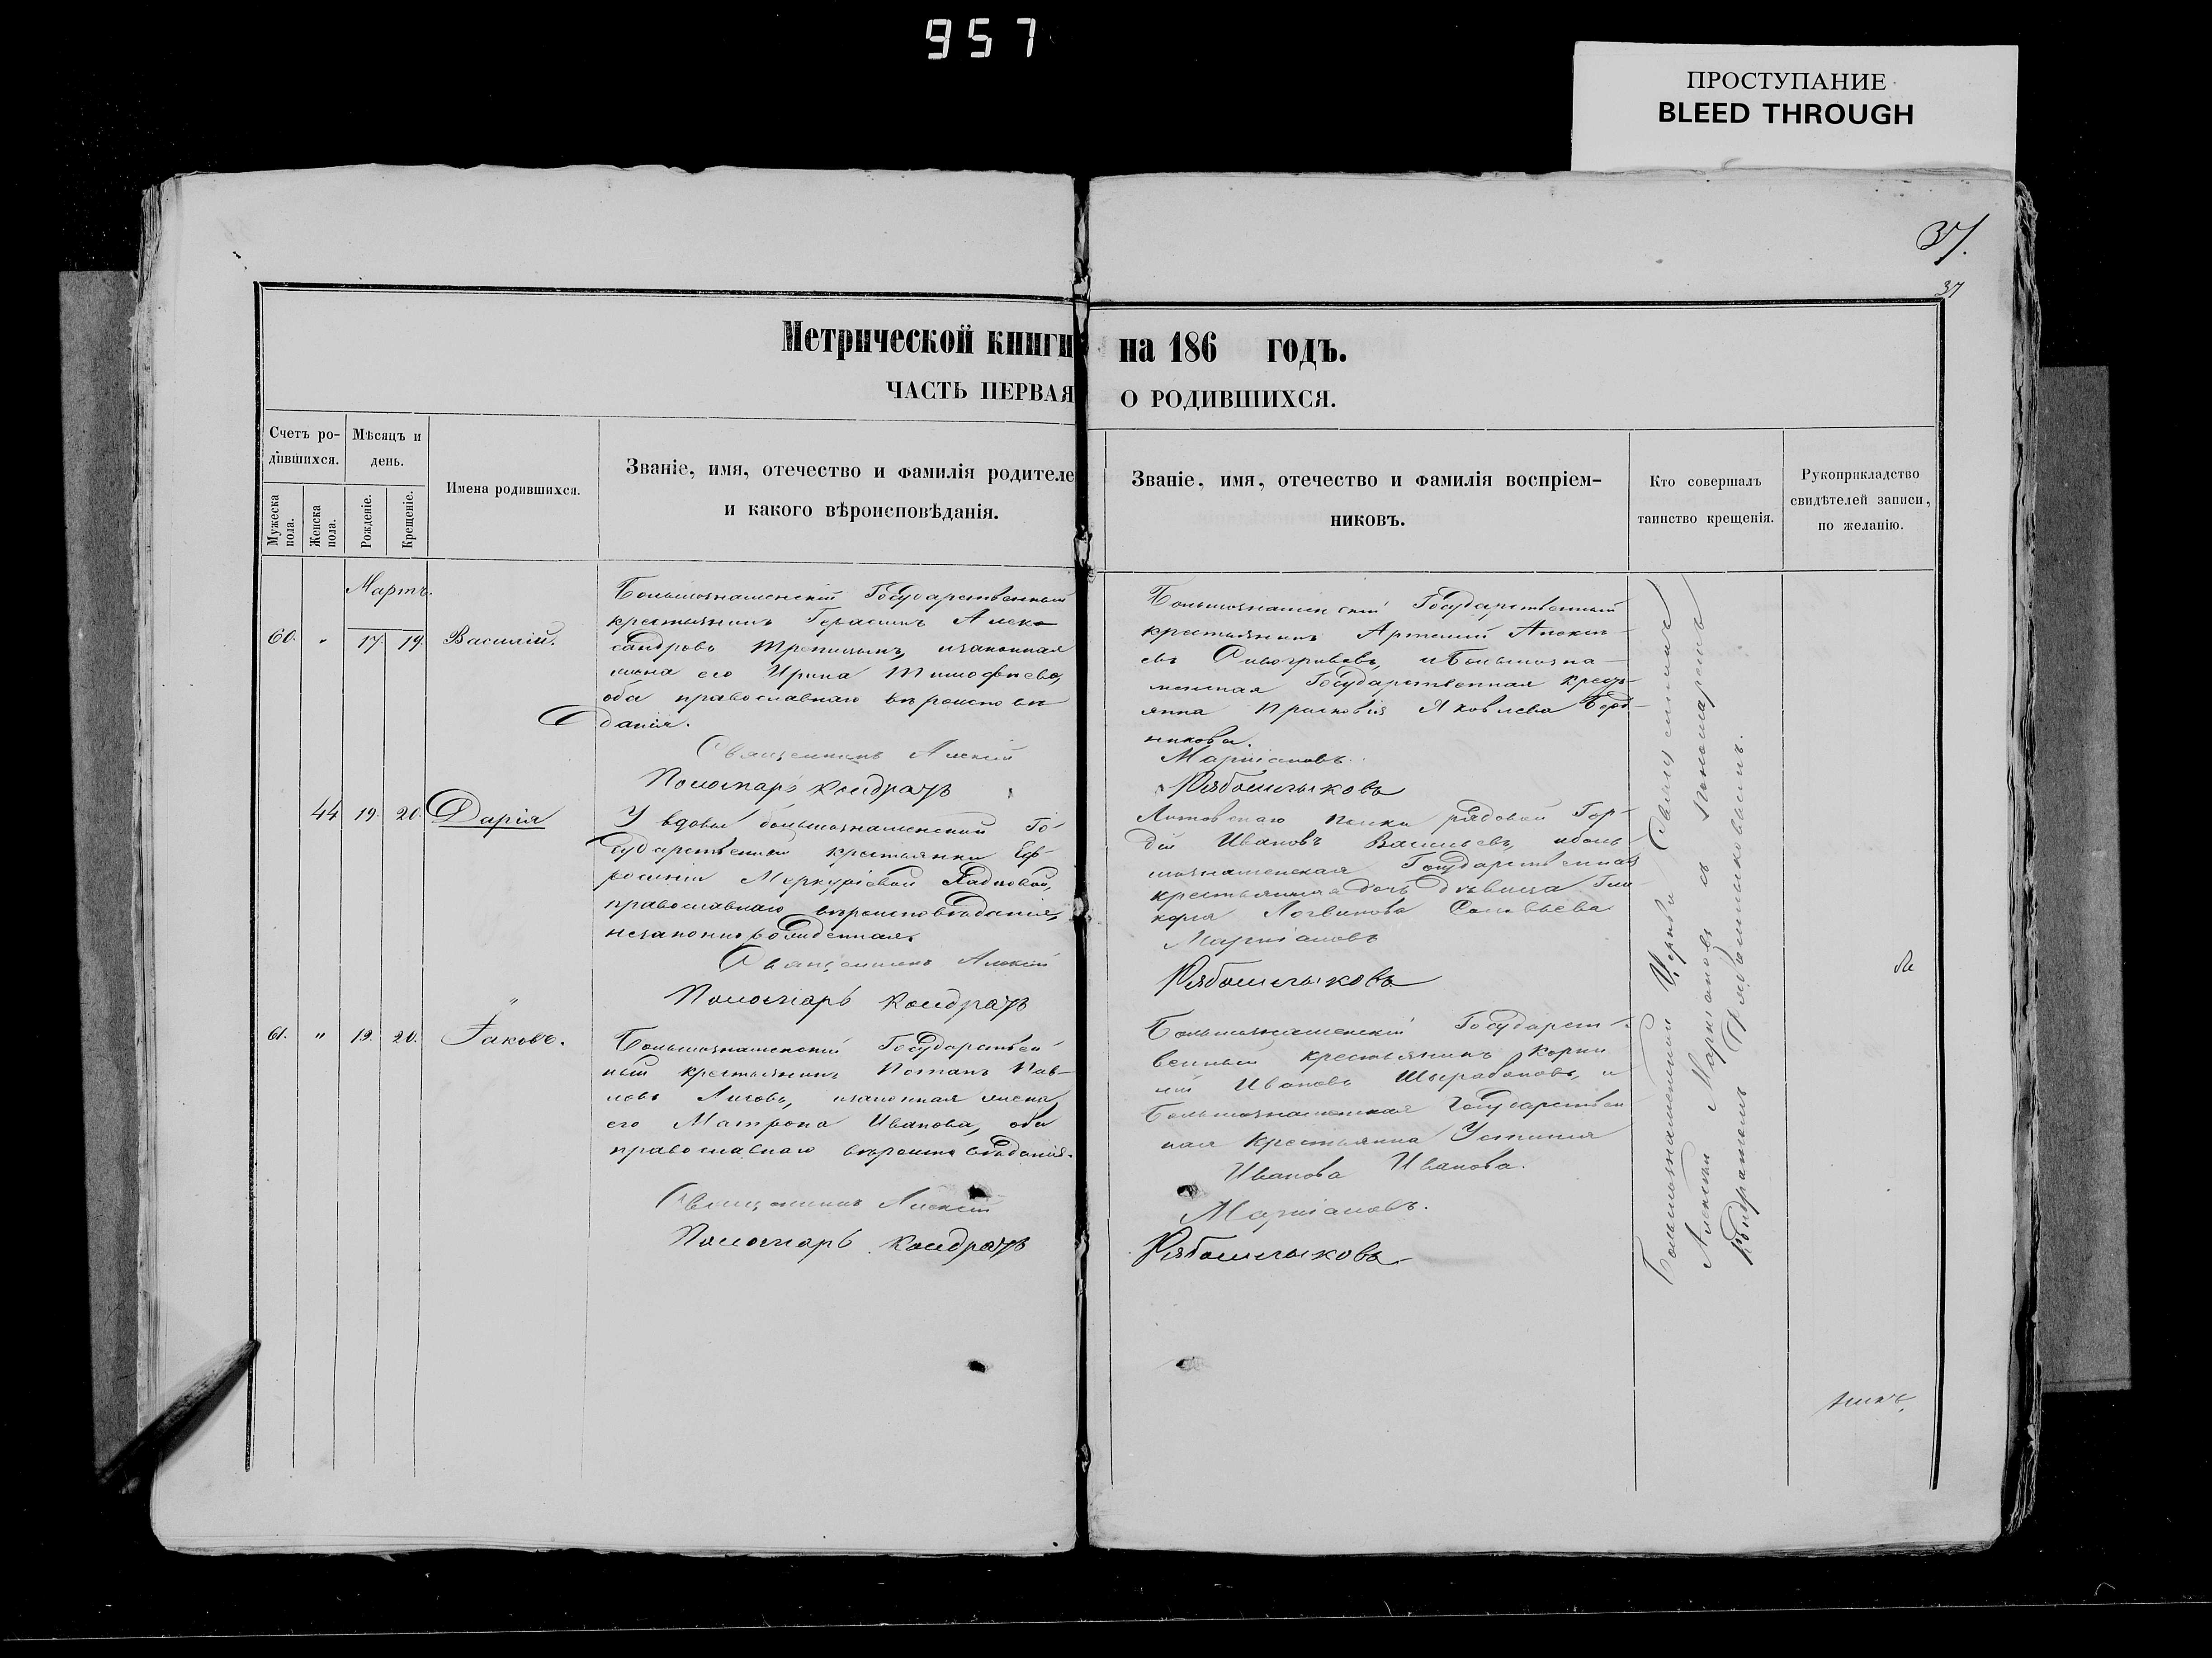 957
ПРОСТУПАНИЕ
BLEED THROUGH
37.
37
Метрической книги на 186 годъ.
ЧАСТЬ ПЕРВАЯ О РОДИВШИХСЯ.
Счетъ родившихся.
Мѣсяцъ и день.
Мужеска пола.
Женска пола.
Рожденіе.
Крещеніе.
Имена родившихся.
Званіе, имя, отечество и фамилія родителе
и какого вѣроисповѣданія.
Званіе, имя, отечество и фамилія воспріем-
никовъ.
Кто совершалъ
таинство крещенія.
Рукоприкладство
свидѣтелей записи,
по желанію.
Мартъ.
60. " 17. 19. Василій.
Большознаменскій Государственный
крестьянинъ Герасимъ Алек-
сандровъ изаконная
жена его Ирина Тимофѣева,
оба православнаго вѣроисповѣ
данія.
Священникъ Алексій
Пономарь Кондратъ
Большознаменскій Государственный
крестьянинъ Артемій Алексѣ-
евъ иБольшозна-
менская Государственная Кресть-
янка Прасковія Яковлева
никова.
Маркіановъ.
Рябошлыковъ
44 19. 20. Дарія
У вдовы большознаменской Го-
сударственной крестьянки Еф-
росиніи Меркуріевой
православнаго вѣроисповѣданія,
незаконнорожденная.
Священникъ Алексій
Пономарь Кондратъ
Литовскаго полка рядовой Гор-
дій Ивановъ Васильевъ, иболь-
шознаменская Государственная
крестьянская дочь дѣвица Гли-
керія Логвинова Соловьева
Маркіановъ
Рябошлыковъ
61. " 19. 20. Іаковъ.
Большознаменскій Государствен
ный крестьянинъ Потапъ Пав-
ловъ изаконная жена
его Матрона Иванова, оба
православнаго вѣроисповѣданія.
Священникъ Алексій
Пономарь Кондратъ
Большознаменскій Государст-
венный крестьянинъ Корни
лій Ивановъ и
Большознаменская Государствен
ная Крестьянка Устинія
Иванова Иванова.
Маркіановъ.
Рябошлыковъ
Большознаменской Церкви Священникъ
Алексій Маркіановъ съ Пономаремъ
Кондратомъ Рябошлыковымъ.